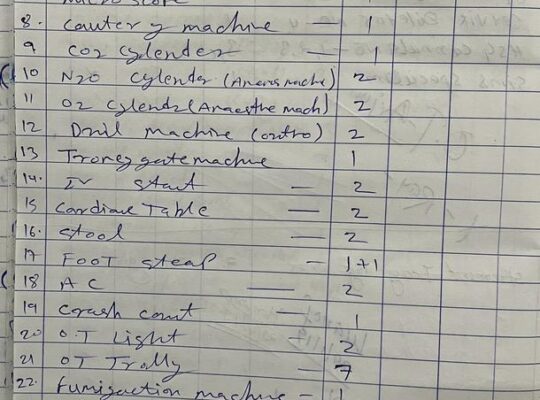 8. Cautery machine — 1
9 CO2 cylender — 1
10 N2O cylender (Anaers mache) 2
11 O2 cylendr (Anaesthe mach) 2
12 Drill machine (ortro) 2
13 Troneggatemachine 1
14. IV stant — 2
15 Cardiac Table — 2
16. Stool — 2
17 FOOT steap — 1+1
18 AC — 2
19 Crash cart — 1
20 O.T Light 2
21 OT Trolly — 7
22. Fumigaction machine — 1